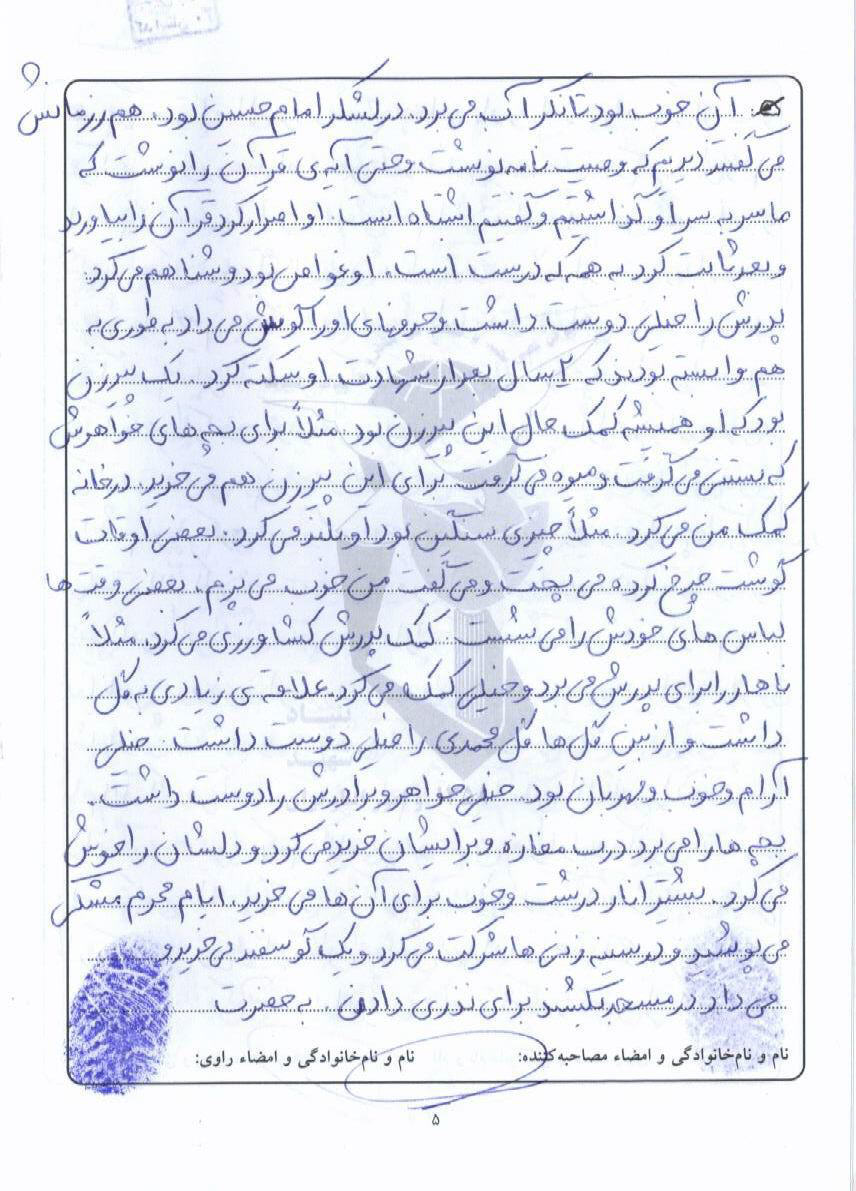 آن خوب بود تانکر آب می برد. در لشکر امام حسین بود. هم رزمانش
می گفتند دیدیم که وصیت نامه نوشت و حتی آیه ی قرآن را نوشت که
ما سر به سر او گذاشتیم و گفتیم اشتباه است. او اصرار کرد قرآن را بیاورید
و بعد ثابت کرد به همه که درست است. او غواص بود و شنا هم می کرد.
پدرش را خیلی دوست داشت و حرفهای او را گوش می داد به طوری به
هم وابسته بودند که ۲ سال بعد از شهادت او سکته کرد. یک پیرزن
بود که او همیشه کمک حال این پیرزن بود. مثلاً برای بچه های خواهرش
که بستنی می گرفت و میوه می گرفت برای این پیرزن هم می خرید. در خانه
کمک من می کرد. مثلاً چیزی سنگین بود او بلند می کرد. بعضی اوقات
گوشت چرخ کرده می پخت و می گفت من خوب می پزم. بعضی وقت ها
لباس های خودش را می شست. کمک پدرش کشاورزی می کرد. مثلاً
ناهار را برای پدرش می برد و خیلی کمک می کرد. علاقه ی زیادی به گل
داشت و از بین گل ها گل محمدی را خیلی دوست داشت. خیلی
آرام و خوب و مهربان بود. خیلی خواهر و برادرش را دوست داشت.
بچه ها را می برد درب مغازه و برایشان خرید می کرد و دلشان را خوش
می کرد. بیشتر انار درشت و خوب برای آن ها می خرید. ایام محرم مشکی
می پوشید و در سینه زنی ها شرکت می کرد و یک گوسفند می خرید و
می داد در مسجد بکشند برای نذری دادن. به حضرت
نام و نام‌خانوادگی و امضاء مصاحبه‌کننده: نام و نام‌خانوادگی و امضاء راوی:
۵